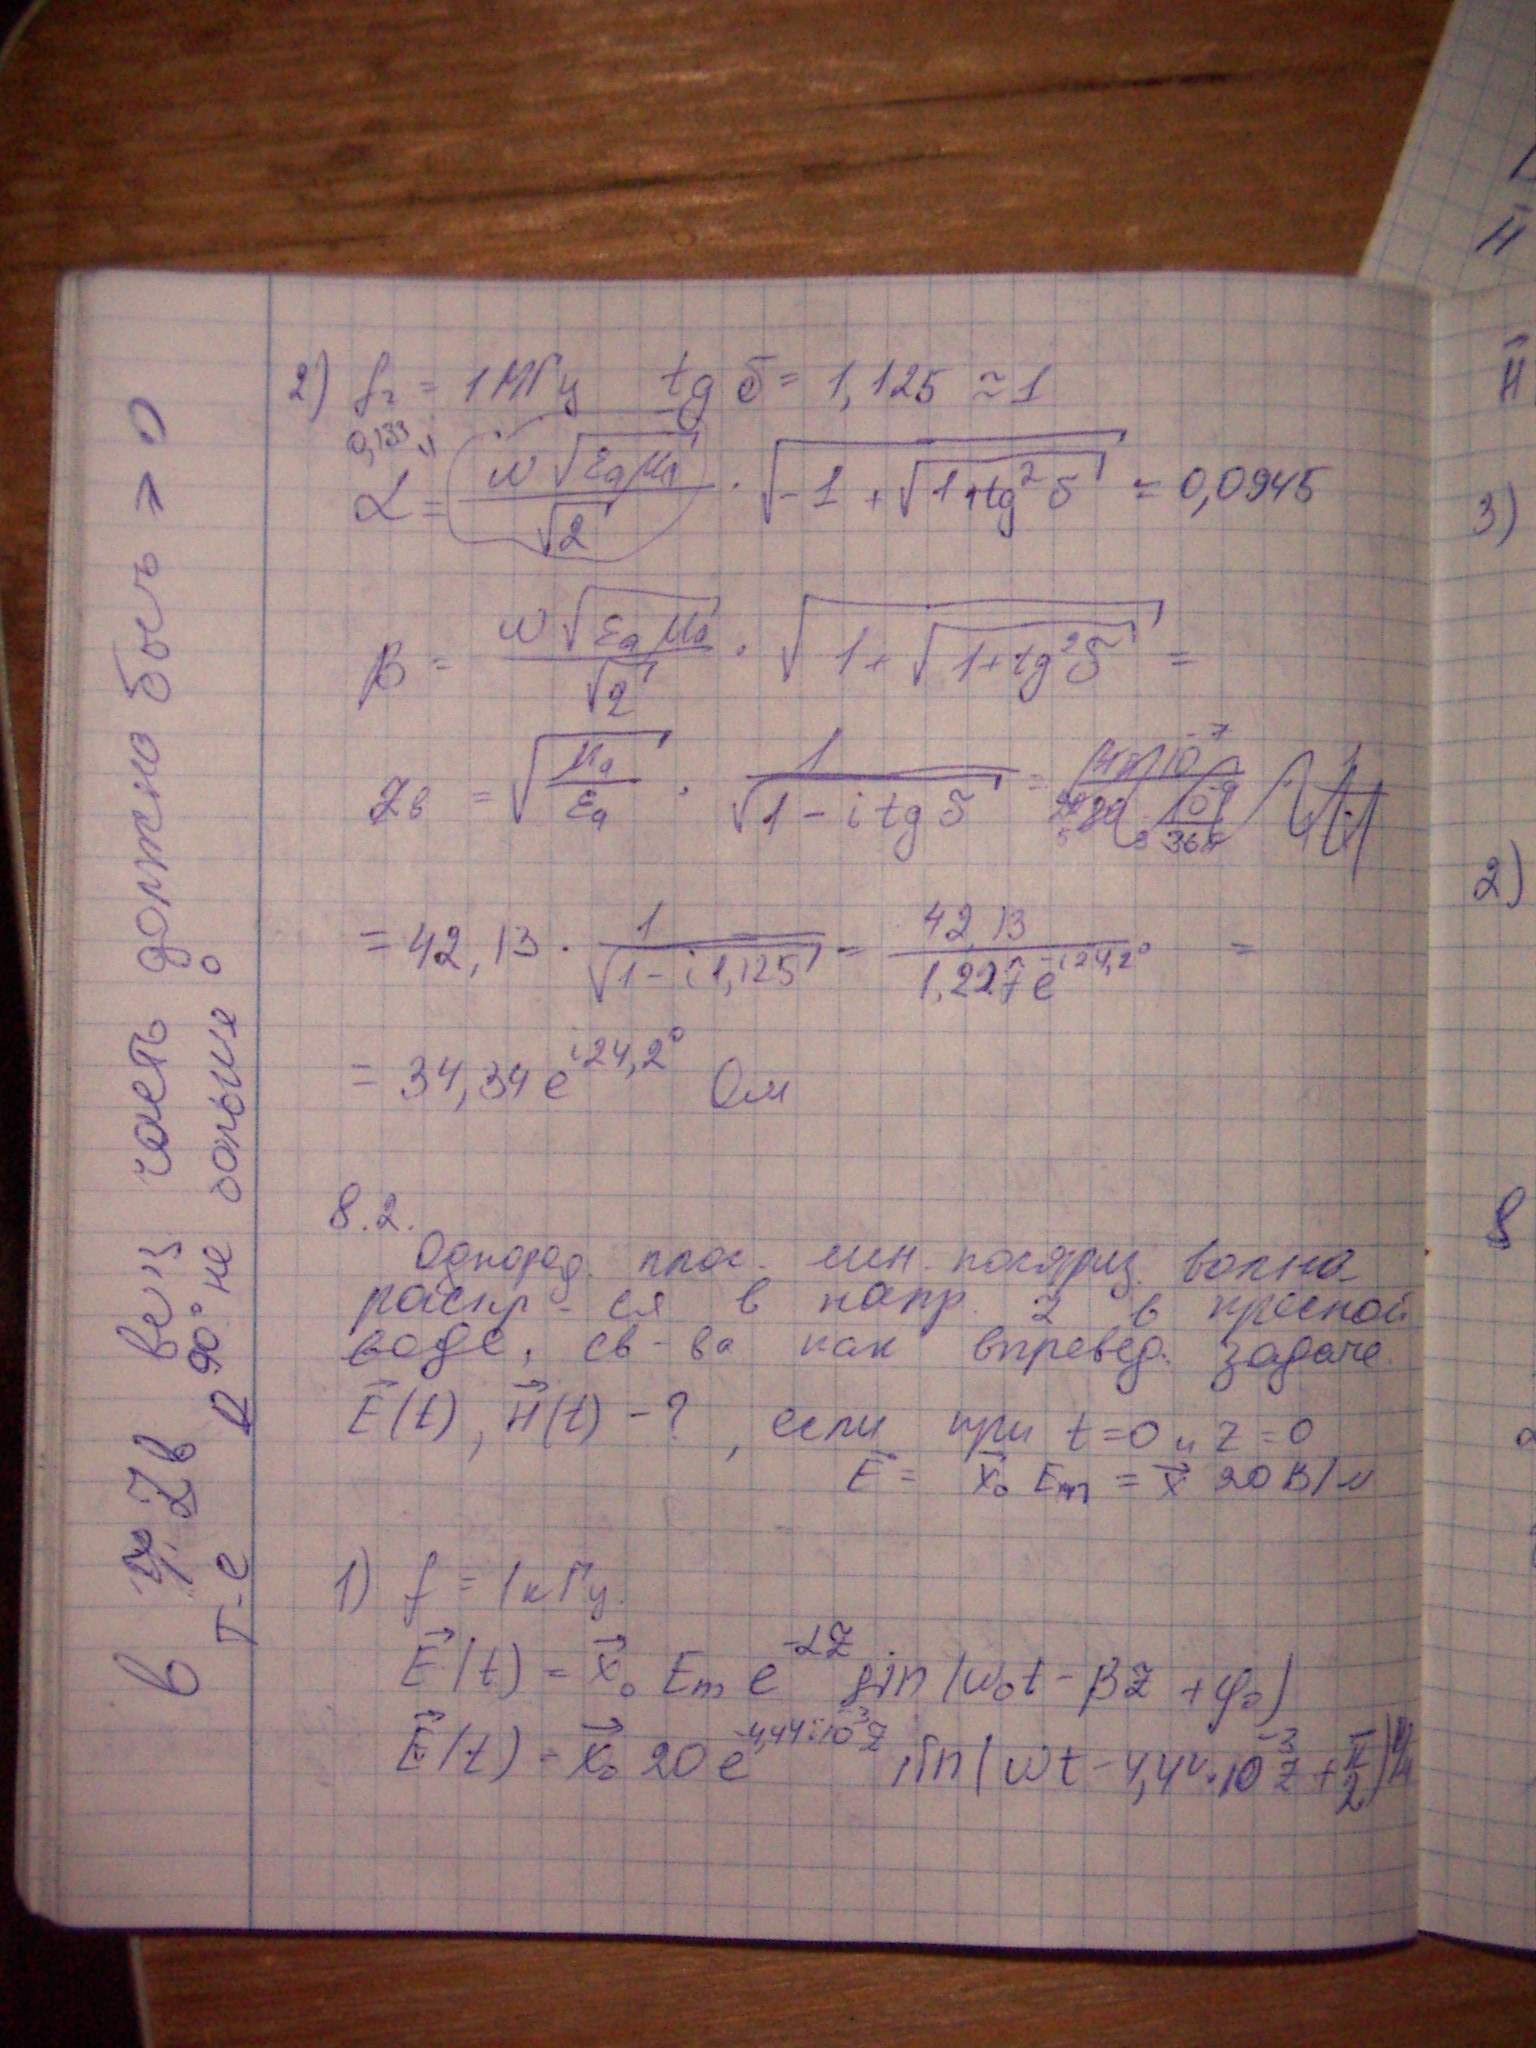 2) f₂ = 1 МГц tg δ = 1,125 ≈ 1
0,133
α = ω√(εₐμₐ)/√2 · √(-1 + √(1+tg²δ)) = 0,0945
β = ω√(εₐμₐ)/√2 · √(1 + √(1+tg²δ)) =
Zв = √(μₐ/εₐ) · 1/√(1 - i tg δ) =
= 42,13 · 1/√(1 - i1,125) = 42,13/(1,227 e^(-i24,2°)) =
= 34,34 e^(i24,2°) Ом
8.2.
Однород. плос. лин. поляриз. волна
распр-ся в напр. z в пресной
воде, св-ва как в превед. задаче.
E⃗(t), H⃗(t) - ?, если при t=0 и z=0
E⃗ = x⃗₀ Eₘ = x⃗ 20 В/м
1) f = 1кГц.
E⃗(t) = x⃗₀ Eₘ e^(-αz) sin(ω₀t - βz + φ₀)
E⃗(t) = x⃗₀ 20 e^(-4,44·10⁻³z) sin(ωt - 4,44·10⁻³z + π/2)
в Zв вещ часть должна быть > 0
т-е 90° не больше
H
H⃗
3)
2)
8